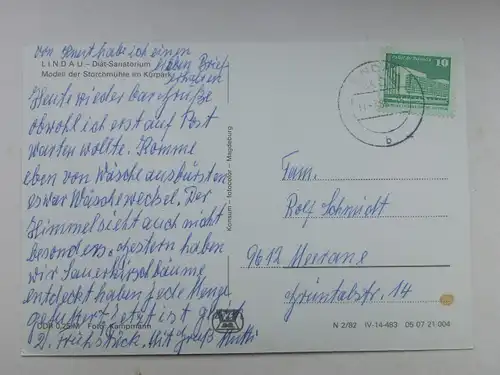 Von Horst habe ich einen
lieben Brief
erhalten
LINDAU – Diät-Sanatorium
Modell der Storchmühle im Kurpark
Heute wieder ein paar Grüße
obwohl ich erst auf Post
warten wollte. Komme
eben von Wäsche ausbürsten
es war Wäschewechsel. Der
Himmel sieht auch nicht
besonders. Gestern haben
wir Sauerkirschbäume
entdeckt haben jede Menge
gefuttert. Jetzt ist gleich
2. Frühstück. Mit Gruß
DDR 0,25 M Foto: Kampmann
Konsum – fotocolor – Magdeburg
10
b
Fam.
Rolf Schmidt
9612 Meerane
Grüntalstr. 14
N 2/82 IV-14-483 05 07 21 004